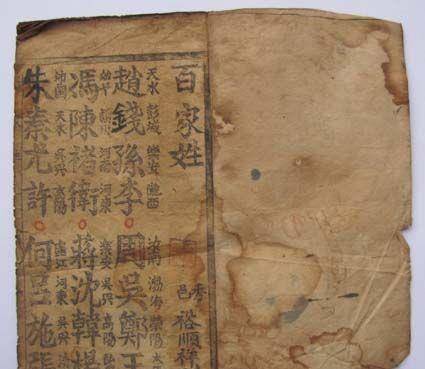 百家姓
秀邑
裕順祥
天水 彭城 樂安 隴西 汝南 渤海 滎陽
趙錢孫李周吳鄭王
始平 潁川 河南 河東 樂安 吳興
馮陳褚衛蔣沈韓楊
沛國 天水 吳興 高陽 廬江 河東 吳興
朱秦尤許何呂施張